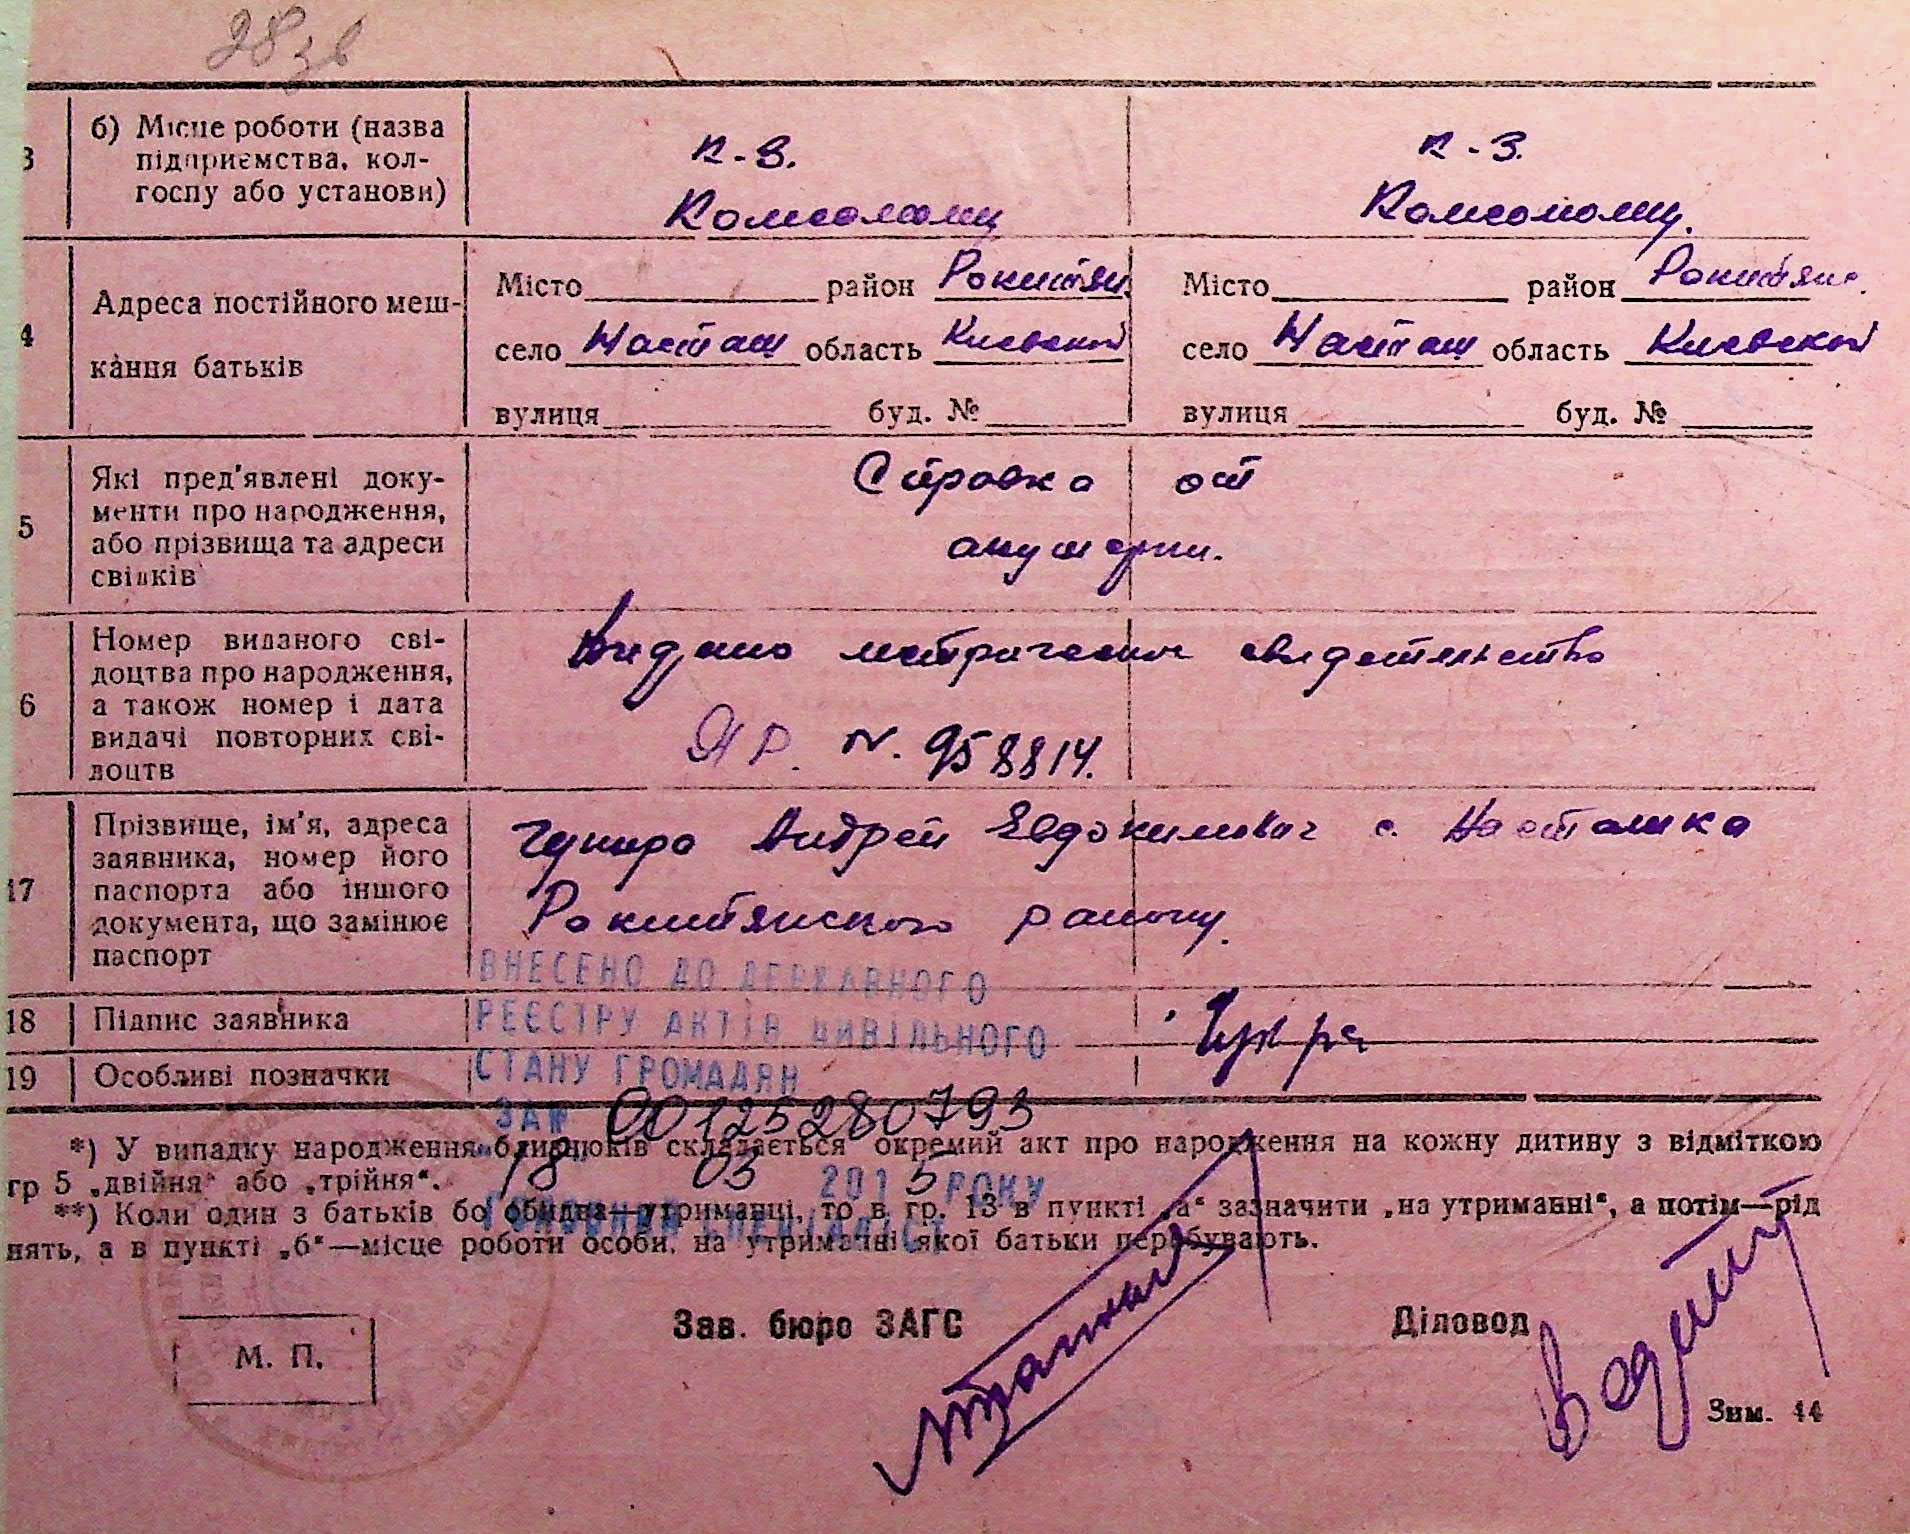 28 зв
3
б) Місце роботи (назва
підприємства, кол-
госпу або установи)
к-з.
Комсомолец
к-з.
Комсомолец.
4
Адреса постійного меш-
кання батьків
Місто район Рокитян.
село Насташ область Киевской
вулиця буд. №
Місто район Рокитянс.
село Насташ область Киевской
вулиця буд. №
5
Які пред'явлені доку-
менти про народження,
або прізвища та адреси
свідків
Справка от
акушерки.
6
Номер виданого сві-
доцтва про народження,
а також номер і дата
видачі повторних сві-
доцтв
Видано метрическое свидетельство
ЯР. N. 958814.
17
Прізвище, ім'я, адреса
заявника, номер його
паспорта або іншого
документа, що замінює
паспорт
Андрей Евдокимович с. Насташка
Рокитянского району.
ВНЕСЕНО ДО ДЕРЖАВНОГО
РЕЄСТРУ АКТІВ ЦИВІЛЬНОГО
СТАНУ ГРОМАДЯН
ЗА № 00125280793
18 03 2015 РОКУ
ГОЛОВНИЙ СПЕЦІАЛІСТ
18
Підпис заявника
19
Особливі позначки
*) У випадку народження близнюків складається окремий акт про народження на кожну дитину з відміткою
гр 5 „двійня“ або „трійня“.
**) Коли один з батьків бо обидва—утриманці, то в гр. 13 в пункті „а“ зазначити „на утриманні“, а потім—рід
нять, а в пункті „б“—місце роботи особи, на утриманні якої батьки перебувають.
М. П.
Зав. бюро ЗАГС
Діловод
Зим. 44